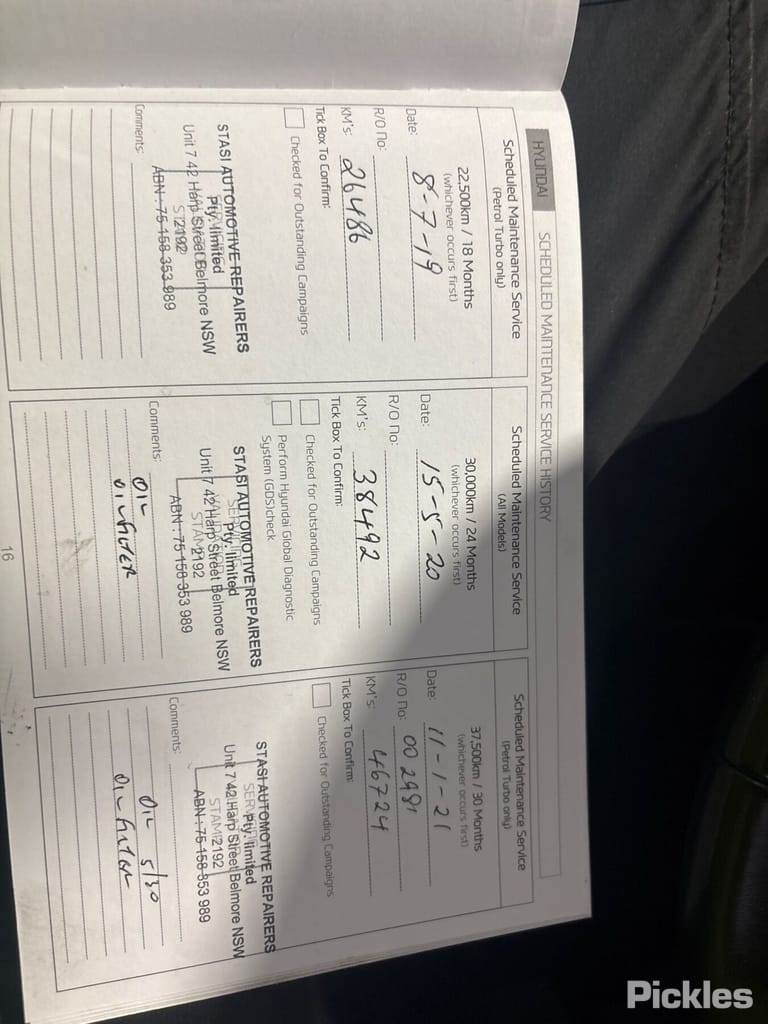 HYUNDAI SCHEDULED MAINTENANCE SERVICE HISTORY
Scheduled Maintenance Service
(Petrol Turbo only)
22,500km / 18 Months
(whichever occurs first)
Date: 8-7-19
R/O No:
KM's: 26486
Tick Box To Confirm:
Checked for Outstanding Campaigns
STASI AUTOMOTIVE REPAIRERS
Pty. limited
Unit 7 42 Harp Street Belmore NSW
2192
ABN : 75 158 353 989
Comments:
Scheduled Maintenance Service
(All Models)
30,000km / 24 Months
(whichever occurs first)
Date: 15-5-20
R/O No:
KM's: 38492
Tick Box To Confirm:
Checked for Outstanding Campaigns
Perform Hyundai Global Diagnostic
System (GDS)check
STASI AUTOMOTIVE REPAIRERS
Pty. limited
Unit 7 42 Harp Street Belmore NSW
STAMP 2192
ABN : 75 158 353 989
Comments:
OIL
OIL FILTER
Scheduled Maintenance Service
(Petrol Turbo only)
37,500km / 30 Months
(whichever occurs first)
Date: 11-1-21
R/O No: 002981
KM's: 46724
Tick Box To Confirm:
Checked for Outstanding Campaigns
STASI AUTOMOTIVE REPAIRERS
Pty. limited
Unit 7 42 Harp Street Belmore NSW
STAMP 2192
ABN : 75 158 353 989
Comments:
OIL 5/30
OIL FILTER
16
Pickles